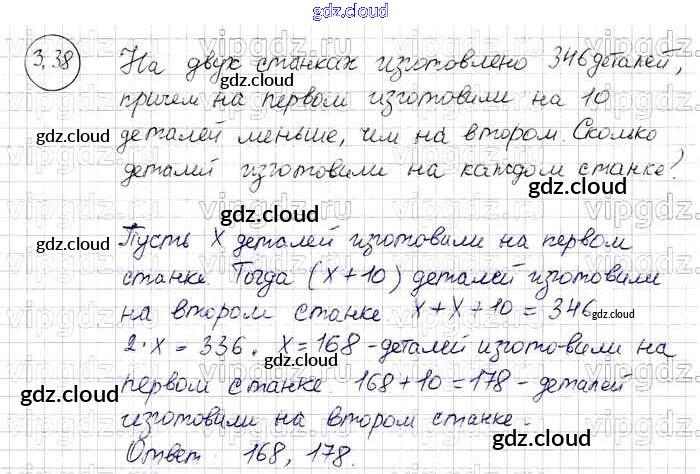 gdz.cloud
3.38 На двух станках изготовлено 346 деталей,
причем на первом изготовили на 10
gdz.cloud
деталей меньше, чем на втором. Сколько
gdz.cloud
деталей изготовили на каждом станке?
gdz.cloud
gdz.cloud
Пусть х деталей изготовили на первом
gdz.cloud
станке. Тогда (х+10) деталей изготовили
на втором станке. х+х+10=346
gdz.cloud
2·х=336. х=168-деталей изготовили на
gdz.cloud
первом станке. 168+10=178-деталей
gdz.cloud
изготовили на втором станке.
gdz.cloud
Ответ 168, 178.
gdz.cloud